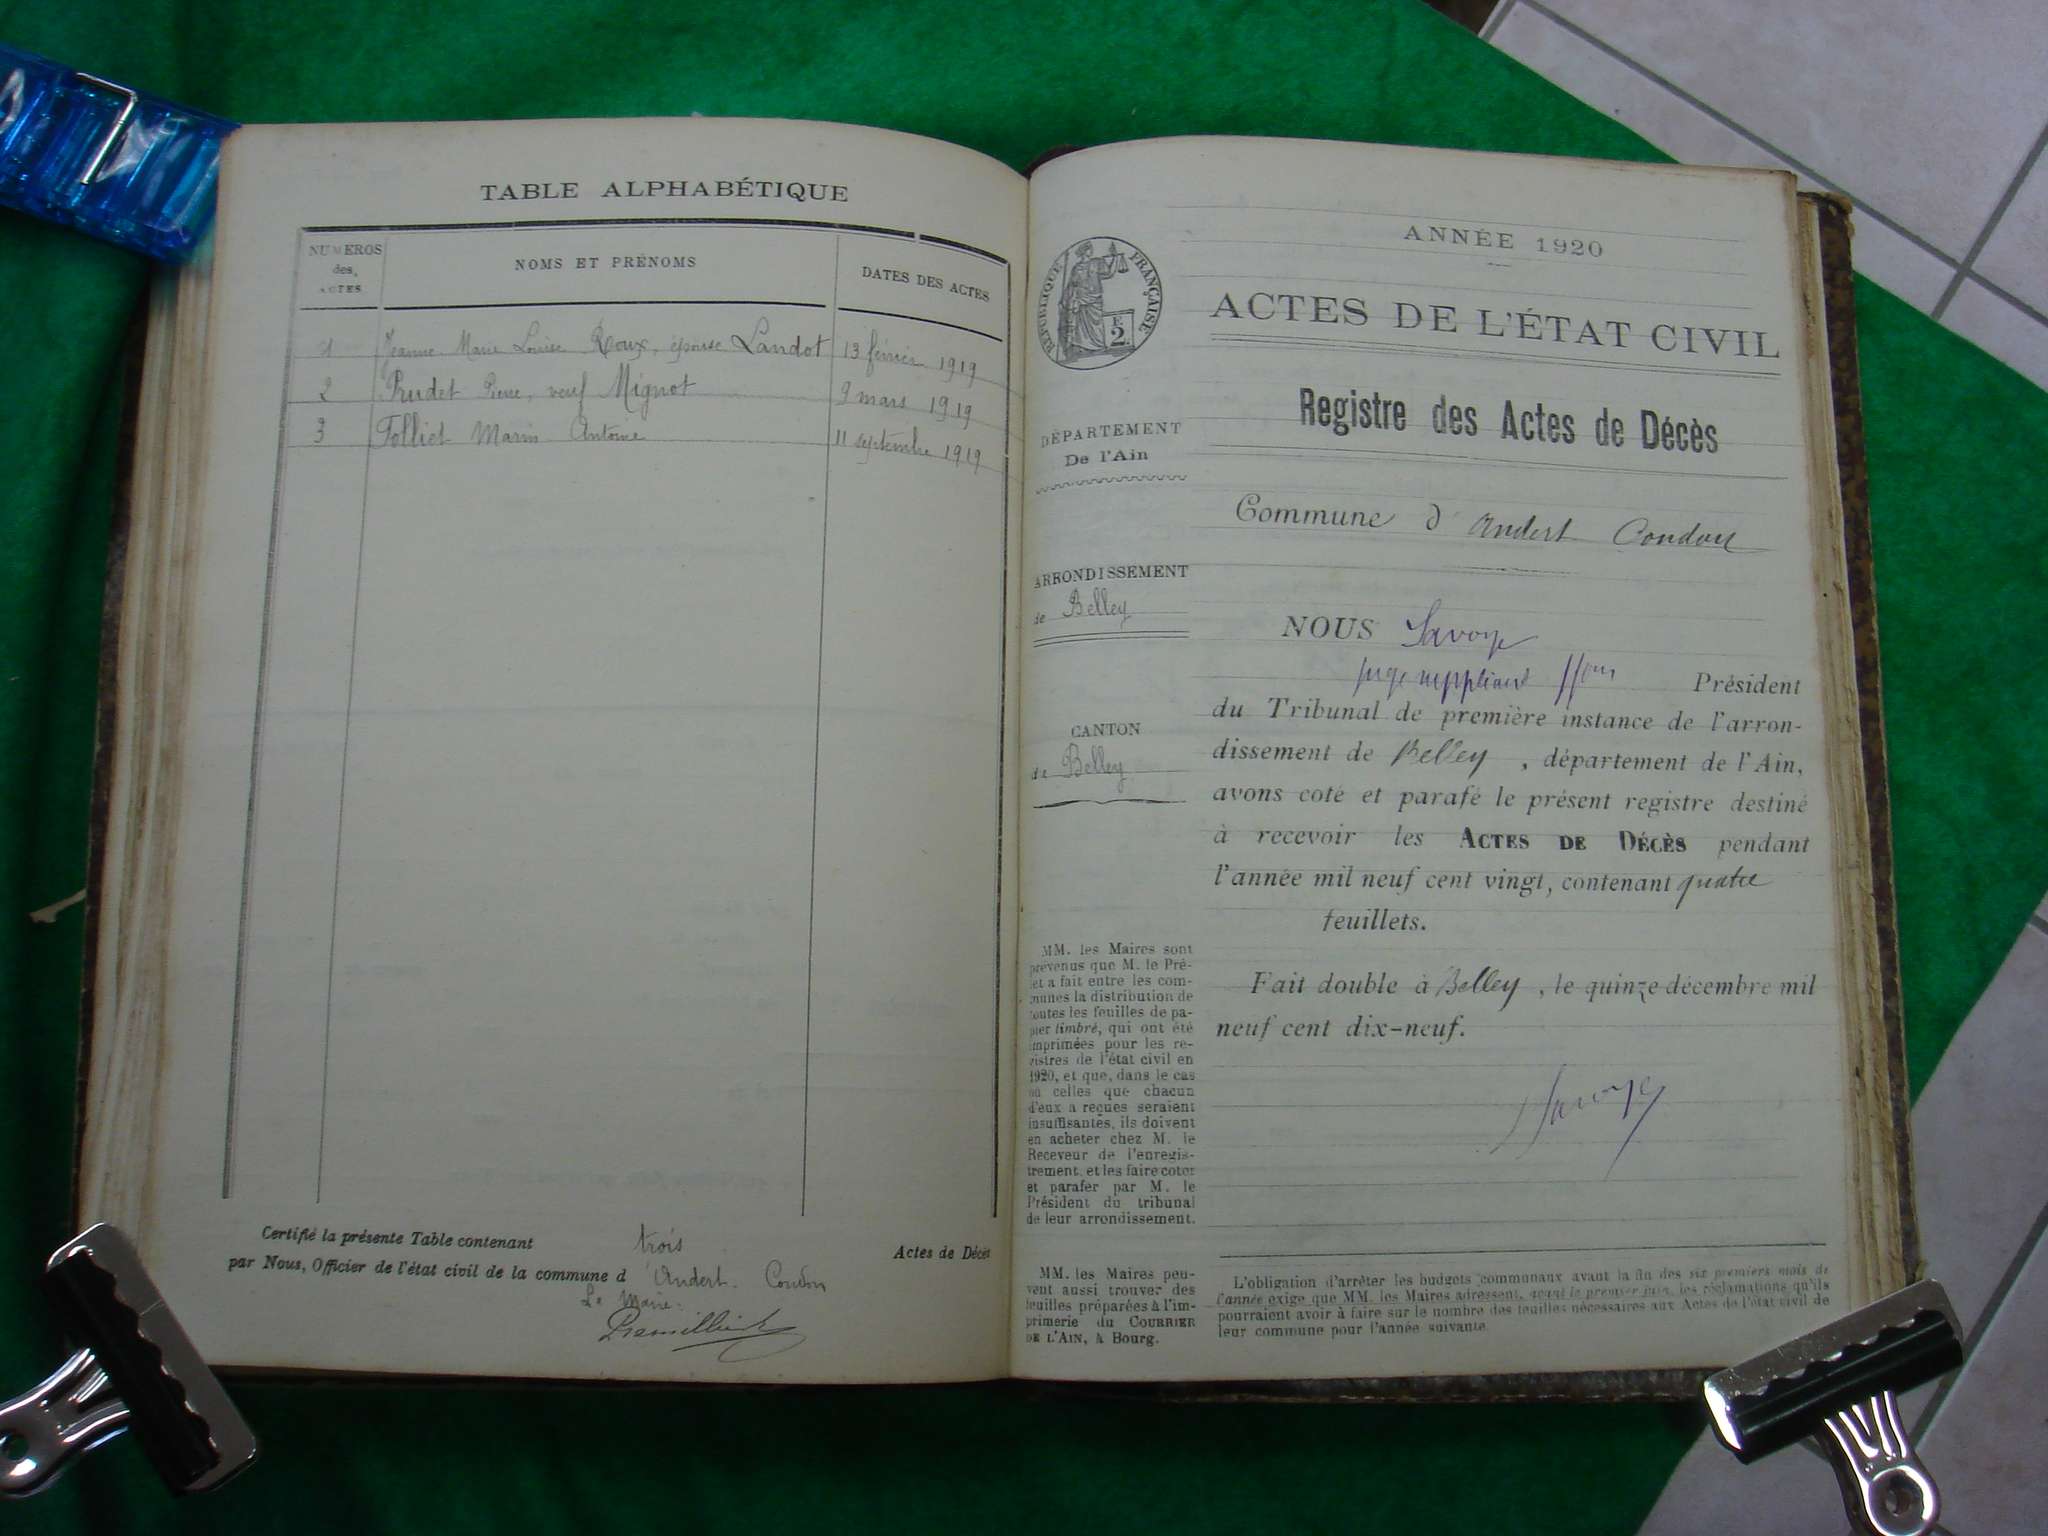 TABLE ALPHABÉTIQUE
NUMEROS
des
ACTES
NOMS ET PRÉNOMS
DATES DES ACTES
1 Jeanne Marie Louise Roux, épouse Landot 13 février 1919
2 Rudet Pierre, veuf Mignot 9 mars 1919
3 Folliet Marin Antoine 11 septembre 1919
Certifié la présente Table contenant trois Actes de Décès
par Nous, Officier de l'état civil de la commune d'Andert-Condon
Le Maire:
RÉPUBLIQUE FRANÇAISE
E
2
DÉPARTEMENT
De l'Ain
ARRONDISSEMENT
de Belley
CANTON
de Belley
MM. les Maires sont
prévenus que M. le Pré-
fet a fait entre les com-
munes la distribution de
toutes les feuilles de pa-
pier timbré, qui ont été
imprimées pour les re-
gistres de l'état civil en
1920, et que, dans le cas
où celles que chacun
d'eux a reçues seraient
insuffisantes, ils doivent
en acheter chez M. le
Receveur de l'enregis-
trement, et les faire coter
et parafer par M. le
Président du tribunal
de leur arrondissement.
MM. les Maires peu-
vent aussi trouver des
feuilles préparées à l'im-
primerie du COURRIER
DE L'AIN, à Bourg.
ANNÉE 1920
ACTES DE L'ÉTAT CIVIL
Registre des Actes de Décès
Commune d'Andert Condon
NOUS Savoye
juge suppléant ffons Président
du Tribunal de première instance de l'arron-
dissement de Belley, département de l'Ain,
avons coté et parafé le présent registre destiné
à recevoir les ACTES DE DÉCÈS pendant
l'année mil neuf cent vingt, contenant quatre
feuillets.
Fait double à Belley, le quinze décembre mil
neuf cent dix-neuf.
Savoye
L'obligation d'arrêter les budgets communaux avant la fin des six premiers mois de
l'année exige que MM. les Maires adressent, avant le premier juin, les réclamations qu'ils
pourraient avoir à faire sur le nombre des feuilles nécessaires aux Actes de l'état civil de
leur commune pour l'année suivante.